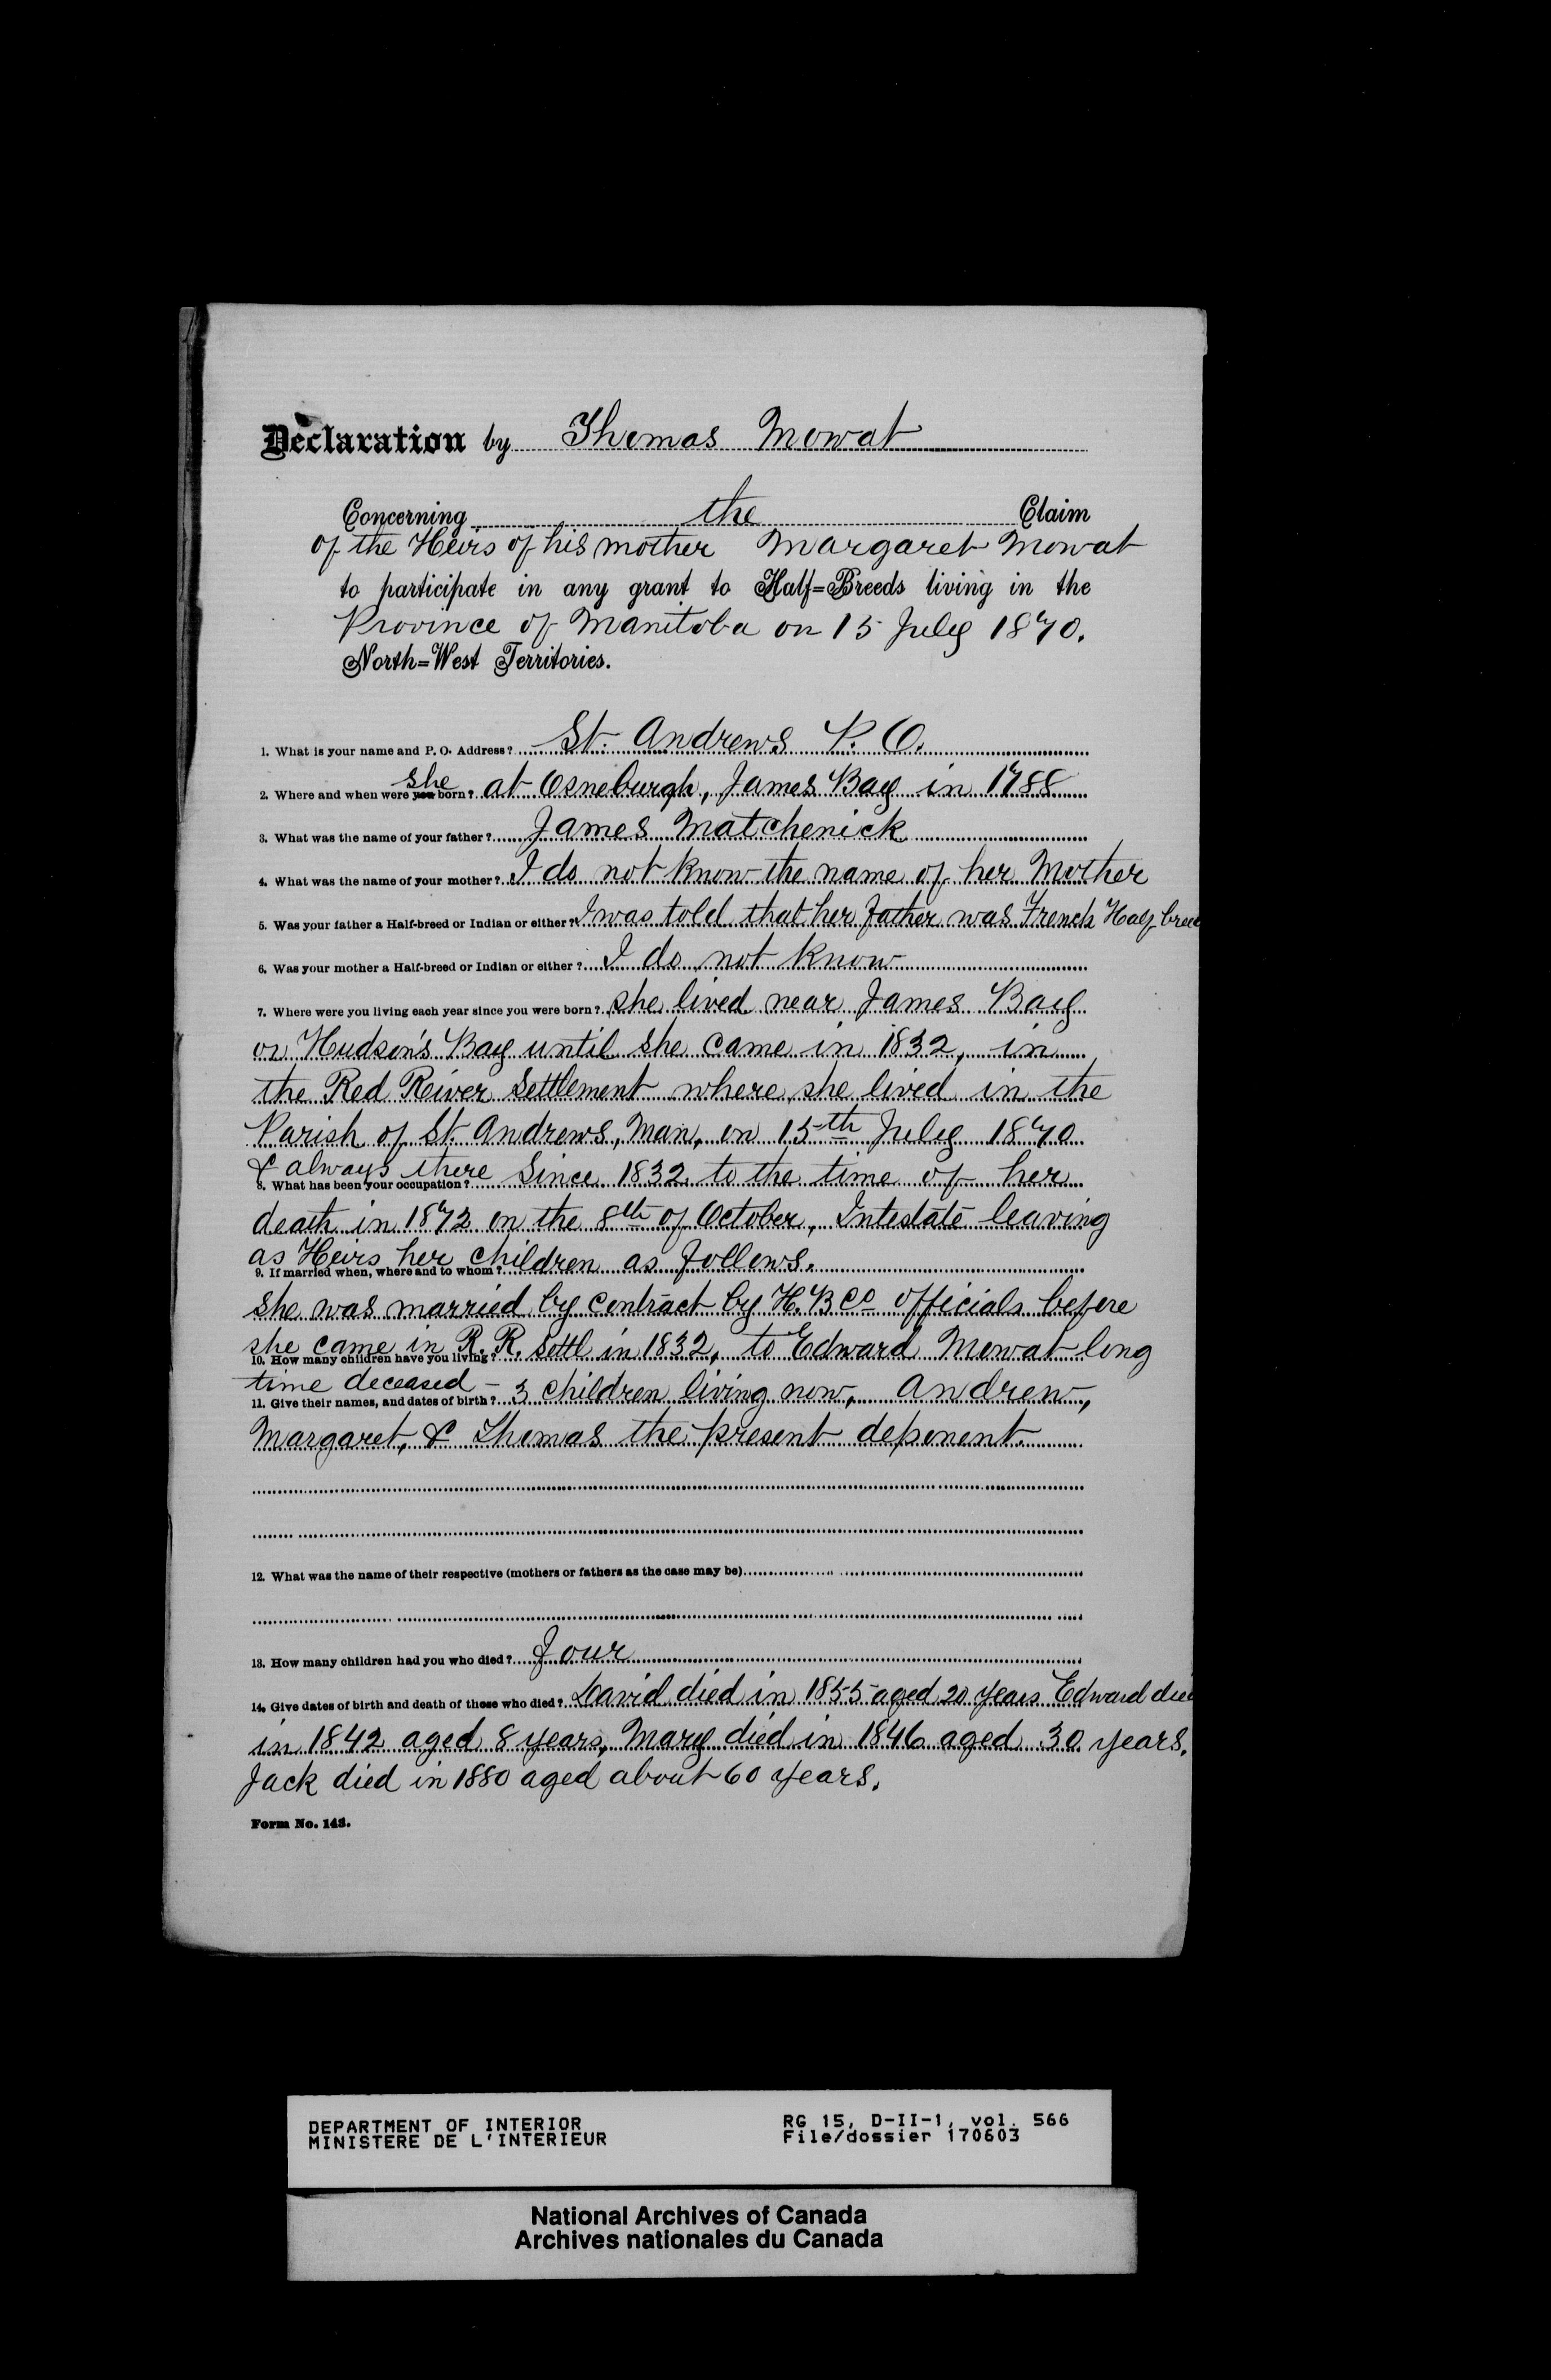 Declaration by Thomas Mowat
Concerning the Claim
of the Heirs of his mother Margaret Mowat
to participate in any grant to Half=Breeds living in the
Province of Manitoba on 15 July 1870.
North=West Territories.
1. What is your name and P. O. Address? St. Andrews P. O.
she
2. Where and when were you born? at Osneburgh, James Bay in 1788
3. What was the name of your father? James Matchenick
4. What was the name of your mother? I do not know the name of her Mother
5. Was your father a Half-breed or Indian or either? I was told that her father was French Half bree
6. Was your mother a Half-breed or Indian or either? I do not know
7. Where were you living each year since you were born? She lived near James Bay
or Hudson's Bay until she came in 1832, in
the Red Reiver Settlement where she lived in the
Parish of St. Andrews, Man, on 15th July 1870
& always there Since 1832 to the time of her
8. What has been your occupation?
death in 1872 on the 8th of October, Intestate leaving
as Heirs her children as follows.
9. If married when, where and to whom?
She was married by contract by H. B Co officials before
she came in R. R. Settl in 1832, to Edward Mowat long
10. How many children have you living?
time deceased - 3 children living now, Andrew,
11. Give their names, and dates of birth?
Margaret, & Thomas the present deponent.
12. What was the name of their respective (mothers or fathers as the case may be)
13. How many children had you who died? Four
14. Give dates of birth and death of those who died? David died in 1855 aged 20 years Edward died
in 1842 aged 8 years, Mary died in 1846 aged 30 years.
Jack died in 1880 aged about 60 years.
Form No. 143.
DEPARTMENT OF INTERIOR RG 15, D-II-1, vol. 566
MINISTERE DE L'INTERIEUR File/dossier 170603
National Archives of Canada
Archives nationales du Canada